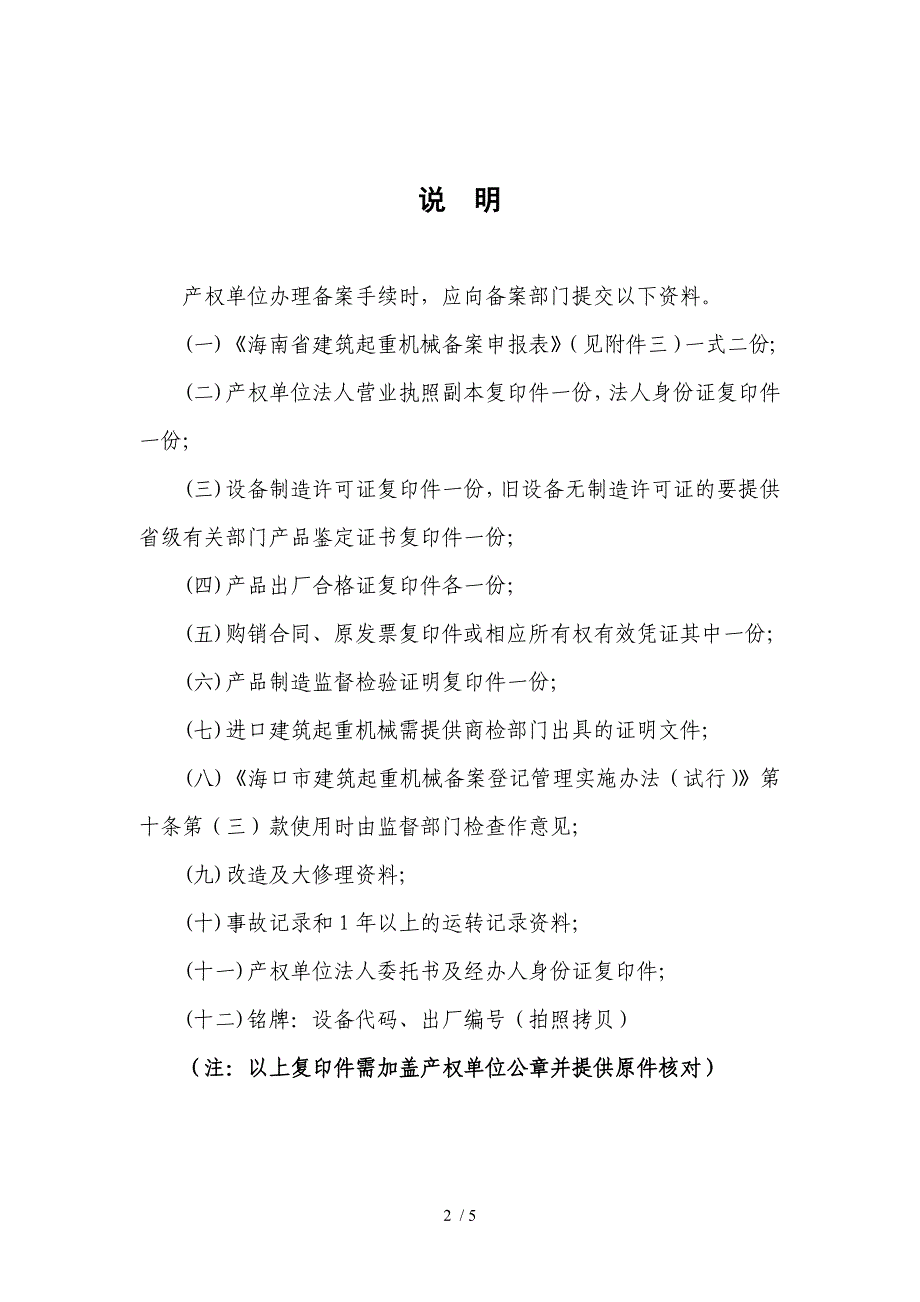 说 明
产权单位办理备案手续时，应向备案部门提交以下资料。
(一)《海南省建筑起重机械备案申报表》（见附件三）一式二份；
(二)产权单位法人营业执照副本复印件一份，法人身份证复印件
一份；
(三)设备制造许可证复印件一份，旧设备无制造许可证的要提供
省级有关部门产品鉴定证书复印件一份；
(四)产品出厂合格证复印件各一份；
(五)购销合同、原发票复印件或相应所有权有效凭证其中一份；
(六)产品制造监督检验证明复印件一份；
(七)进口建筑起重机械需提供商检部门出具的证明文件；
(八)《海口市建筑起重机械备案登记管理实施办法（试行）》第
十条第（三）款使用时由监督部门检查作意见；
(九)改造及大修理资料；
(十)事故记录和1年以上的运转记录资料；
(十一)产权单位法人委托书及经办人身份证复印件；
(十二)铭牌：设备代码、出厂编号（拍照拷贝）
（注：以上复印件需加盖产权单位公章并提供原件核对）
2 / 5